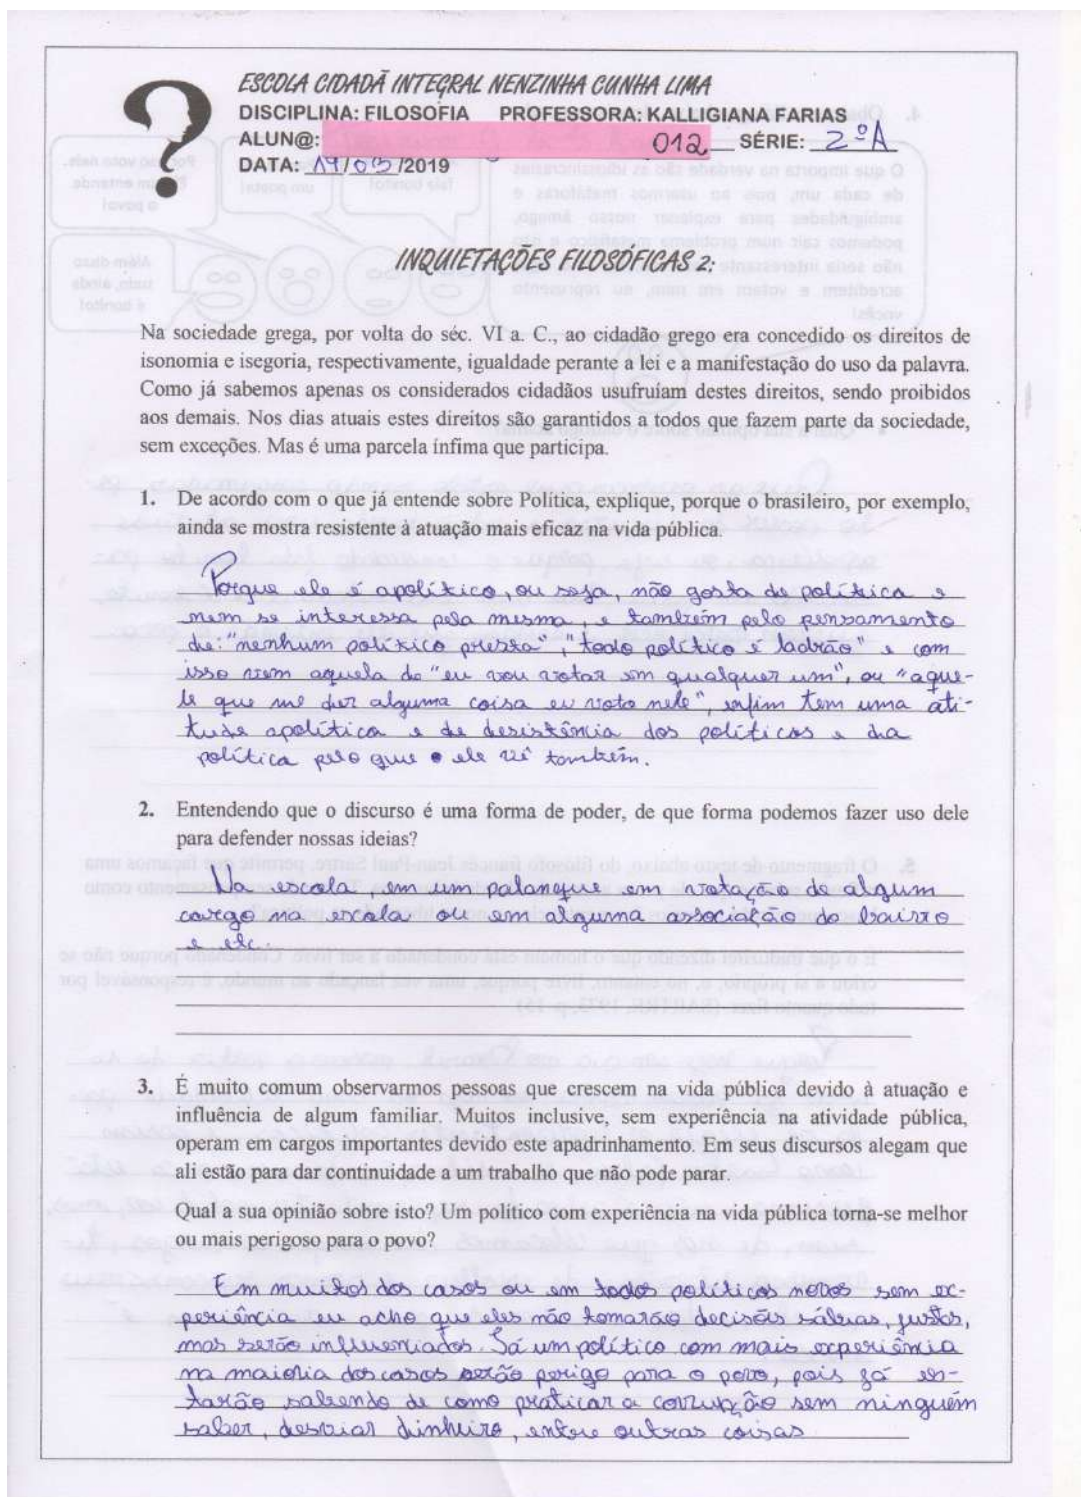 ESCOLA CIDADÃ INTEGRAL NENZINHA CUNHA LIMA
DISCIPLINA: FILOSOFIA PROFESSORA: KALLIGIANA FARIAS
ALUN@: 012 SÉRIE: 2ºA
DATA: 19/03/2019
INQUIETAÇÕES FILOSÓFICAS 2:
Na sociedade grega, por volta do séc. VI a. C., ao cidadão grego era concedido os direitos de
isonomia e isegoria, respectivamente, igualdade perante a lei e a manifestação do uso da palavra.
Como já sabemos apenas os considerados cidadãos usufruíam destes direitos, sendo proibidos
aos demais. Nos dias atuais estes direitos são garantidos a todos que fazem parte da sociedade,
sem exceções. Mas é uma parcela ínfima que participa.
1. De acordo com o que já entende sobre Política, explique, porque o brasileiro, por exemplo,
ainda se mostra resistente à atuação mais eficaz na vida pública.
Porque ele é apolítico, ou seja, não gosta de política e
nem se interessa pela mesma, e também pelo pensamento
de: "nenhum político presta", "todo político é ladrão" e com
isso vem aquela do "eu vou votar em qualquer um", ou "aque-
le que me der alguma coisa eu voto nele", enfim tem uma ati-
tude apolítica e de desistência dos políticos e da
política pelo que ele vê também.
2. Entendendo que o discurso é uma forma de poder, de que forma podemos fazer uso dele
para defender nossas ideias?
Na escola, em um palanque em votação de algum
cargo na escola ou em alguma associação do bairro
e etc.
3. É muito comum observarmos pessoas que crescem na vida pública devido à atuação e
influência de algum familiar. Muitos inclusive, sem experiência na atividade pública,
operam em cargos importantes devido este apadrinhamento. Em seus discursos alegam que
ali estão para dar continuidade a um trabalho que não pode parar.
Qual a sua opinião sobre isto? Um politico com experiência na vida pública torna-se melhor
ou mais perigoso para o povo?
Em muitos dos casos ou em todos políticos novos sem ex-
periência eu acho que eles não tomarão decisões sábias, justas,
mas serão influenciados. Já um político com mais experiência
na maioria dos casos serão perigo para o povo, pois já es-
tarão sabendo de como praticar a corrupção sem ninguém
saber, desviar dinheiro, entre outras coisas